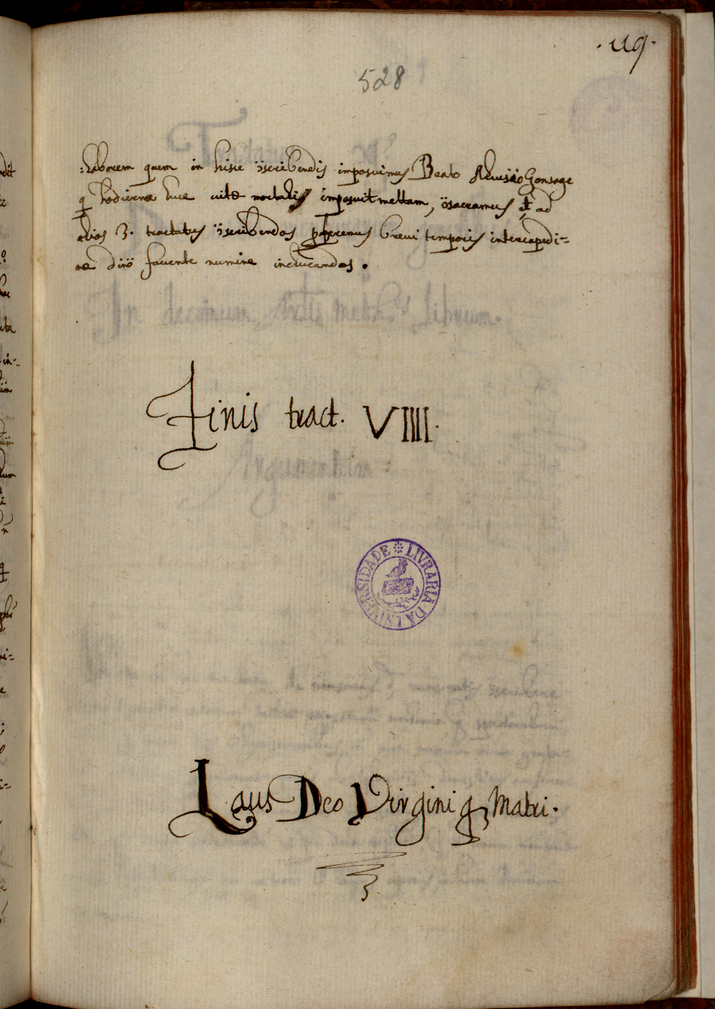 ·119·
528
laborem quem in hisce ɔ̈scribendis imposuimus Beato Aluisio Gonsage
q hodierna luce vitæ mortalis imposuit mettam, ɔ̈sacramus et ad
alios 3. tractatus ɔ̈scribendos brevi temporis intercapedi-
ne favente numine .
Finis tract. VIIII.
LIVRARIA DA UNIVERSIDADE
Laus Deo Virginiq Matri.